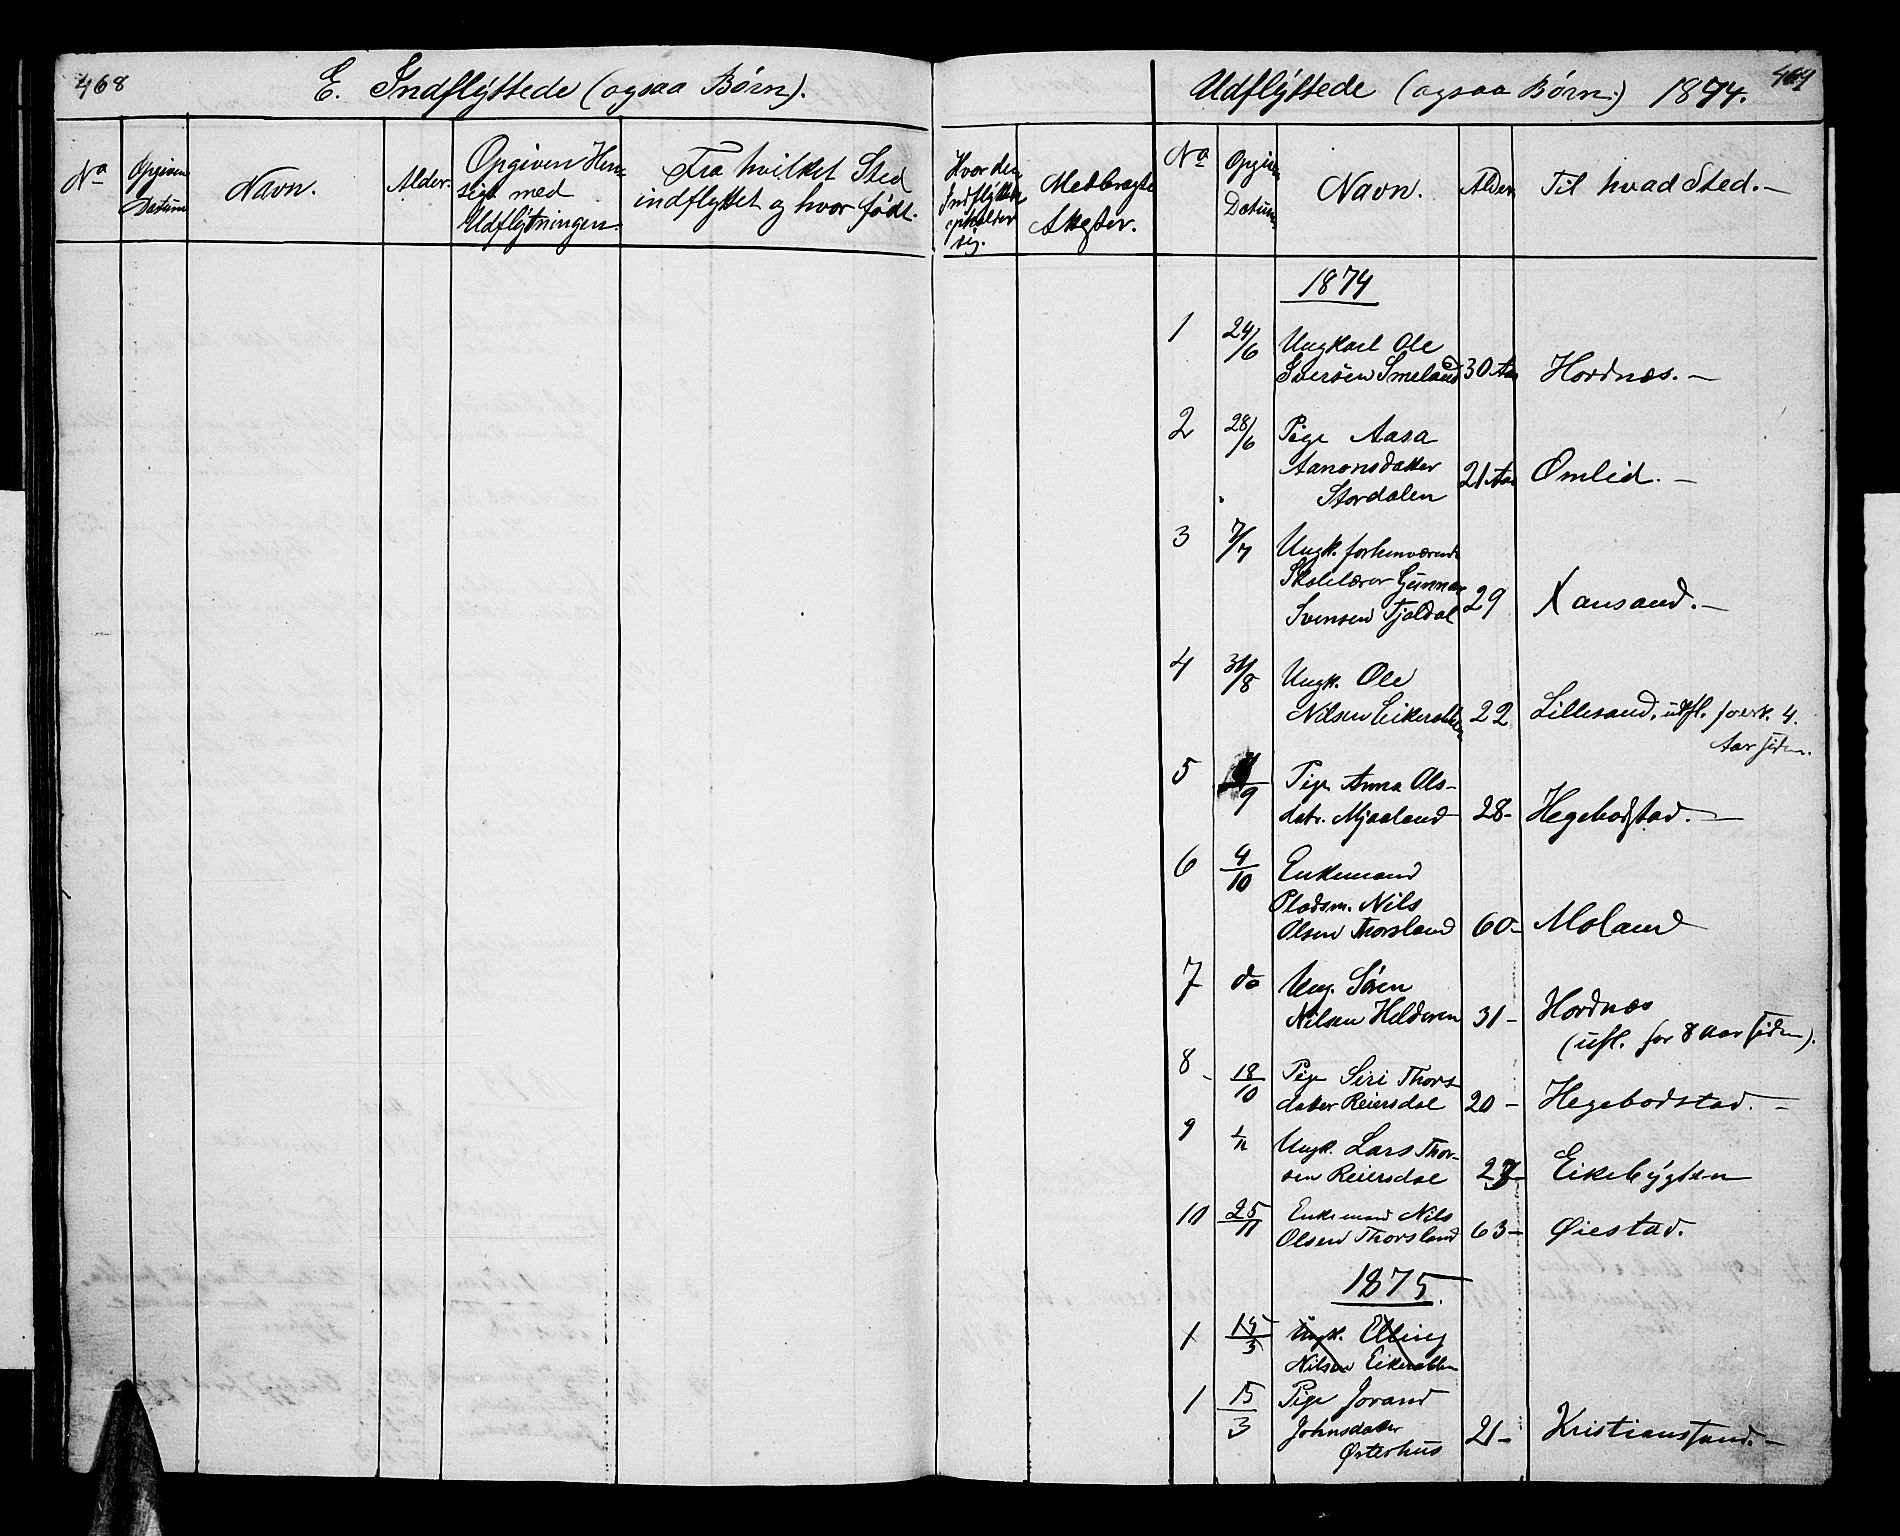 468
E. Indflyttede (ogsaa Børn).
No
Opgiven
Datum
Navn.
Alder.
Opgiven Hen-
sigt med
Udflytningen.
Fra hvilket Sted
indflyttet og hvor født.
Hvor den
Indflyttede
opholder
sig.
Medbragte
Attester.
Udflyttede (ogsaa Børn.) 1874.
469
No
Opgiven
Datum
Navn.
Alder
Til hvad Sted.—
1874
1 24/6 Ungkarl Ole
Sversen Smeland 30 Aar Hordnæs.—
2 28/6 Pige Aasa
Aanonsdatter
Stordalen 21 Aar Omlid.—
3 7/7 Ungk. forhenværende
Skolelærer Gunnar
Svensen Tjaldal 29 Xansand.—
4 31/8 Ungk. Ole
Nilsen Eikeratten 22 Lillesand, utfl. for ca. 4.
Aar siden.
5 /9 Pige Anna Ols-
datr. Mjaaland 28- Hegebostad.—
6 4/10 Enkemand
Pladsm. Nils
Olsen Thorsland 60- Moland
7 do Ung. Søren
Nilsen Helderen 31- Hordnæs
(ufl. for 8 Aar siden).
8 18/10 Pige Siri Thors-
datter Reiersdal 20- Hegebostad.—
9 1/11 Ungk. Lars Thor-
sen Reiersdal 27- Eikebygden
10 25/11 Enkemand Nils
Olsen Thorsland 63- Øiestad.
1875.
1 15/3 Ungk. Elling
Nilsen Eikeratten
1 15/3 Pige Jorand
Johnsdatter
Østerhus 21- Kristianssand.—